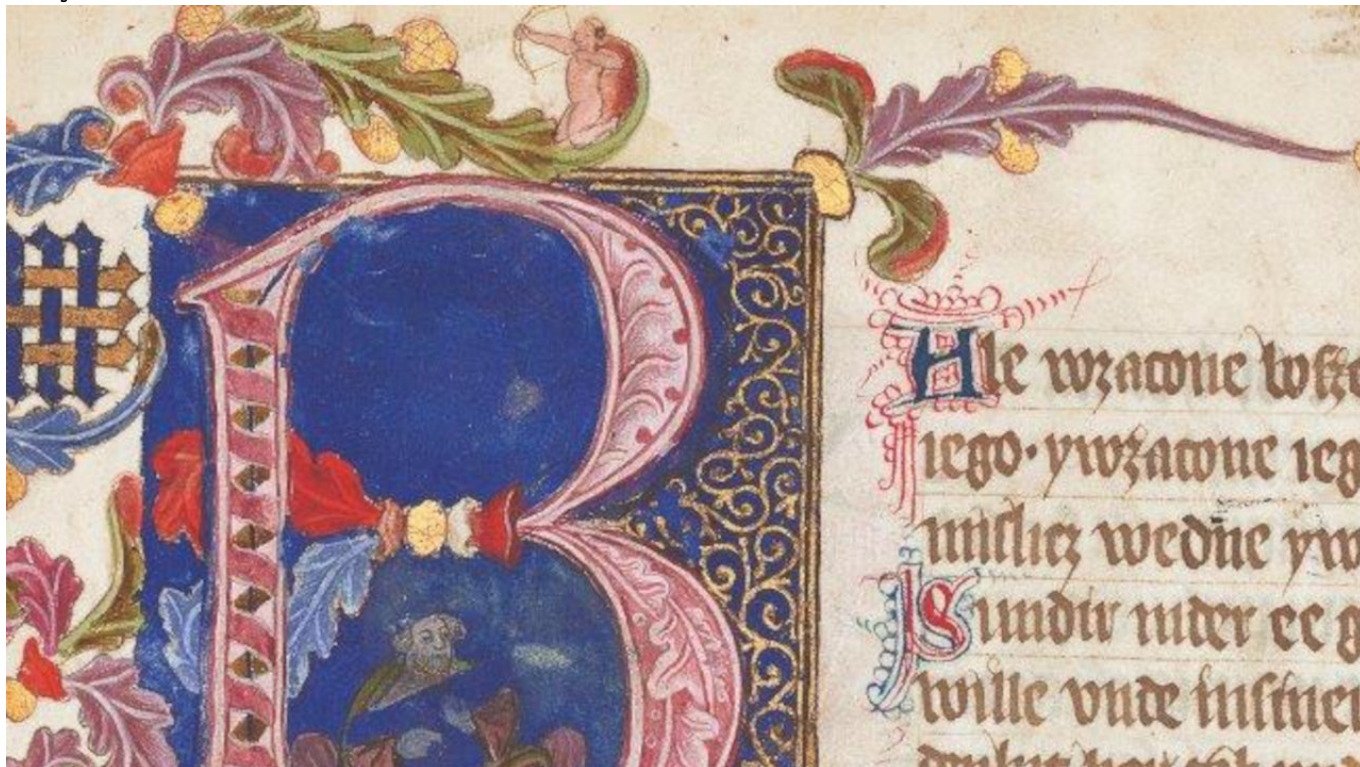 B
Ale wzacone
iego· ywzacone ieg
mislicz wedne yw
Sundir inder ee g
wille vnde insiner